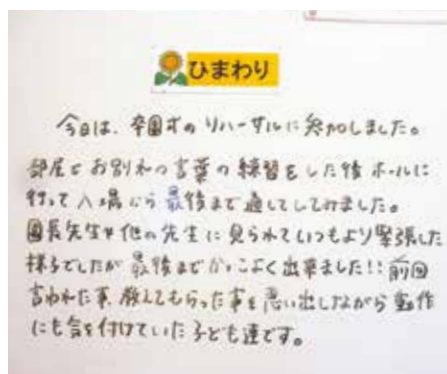 ひまわり
今日は、卒園式のリハーサルに参加しました。
部屋でお別れの言葉の練習をした後ホールに
行って入場から最後まで通してしてみました。
園長先生や他の先生に見られていつもより緊張した
様子でしたが最後までかっこよく出来ました!!前回
言われた事、教えてもらった事を思い出しながら動作
にも気を付けていた子ども達です。